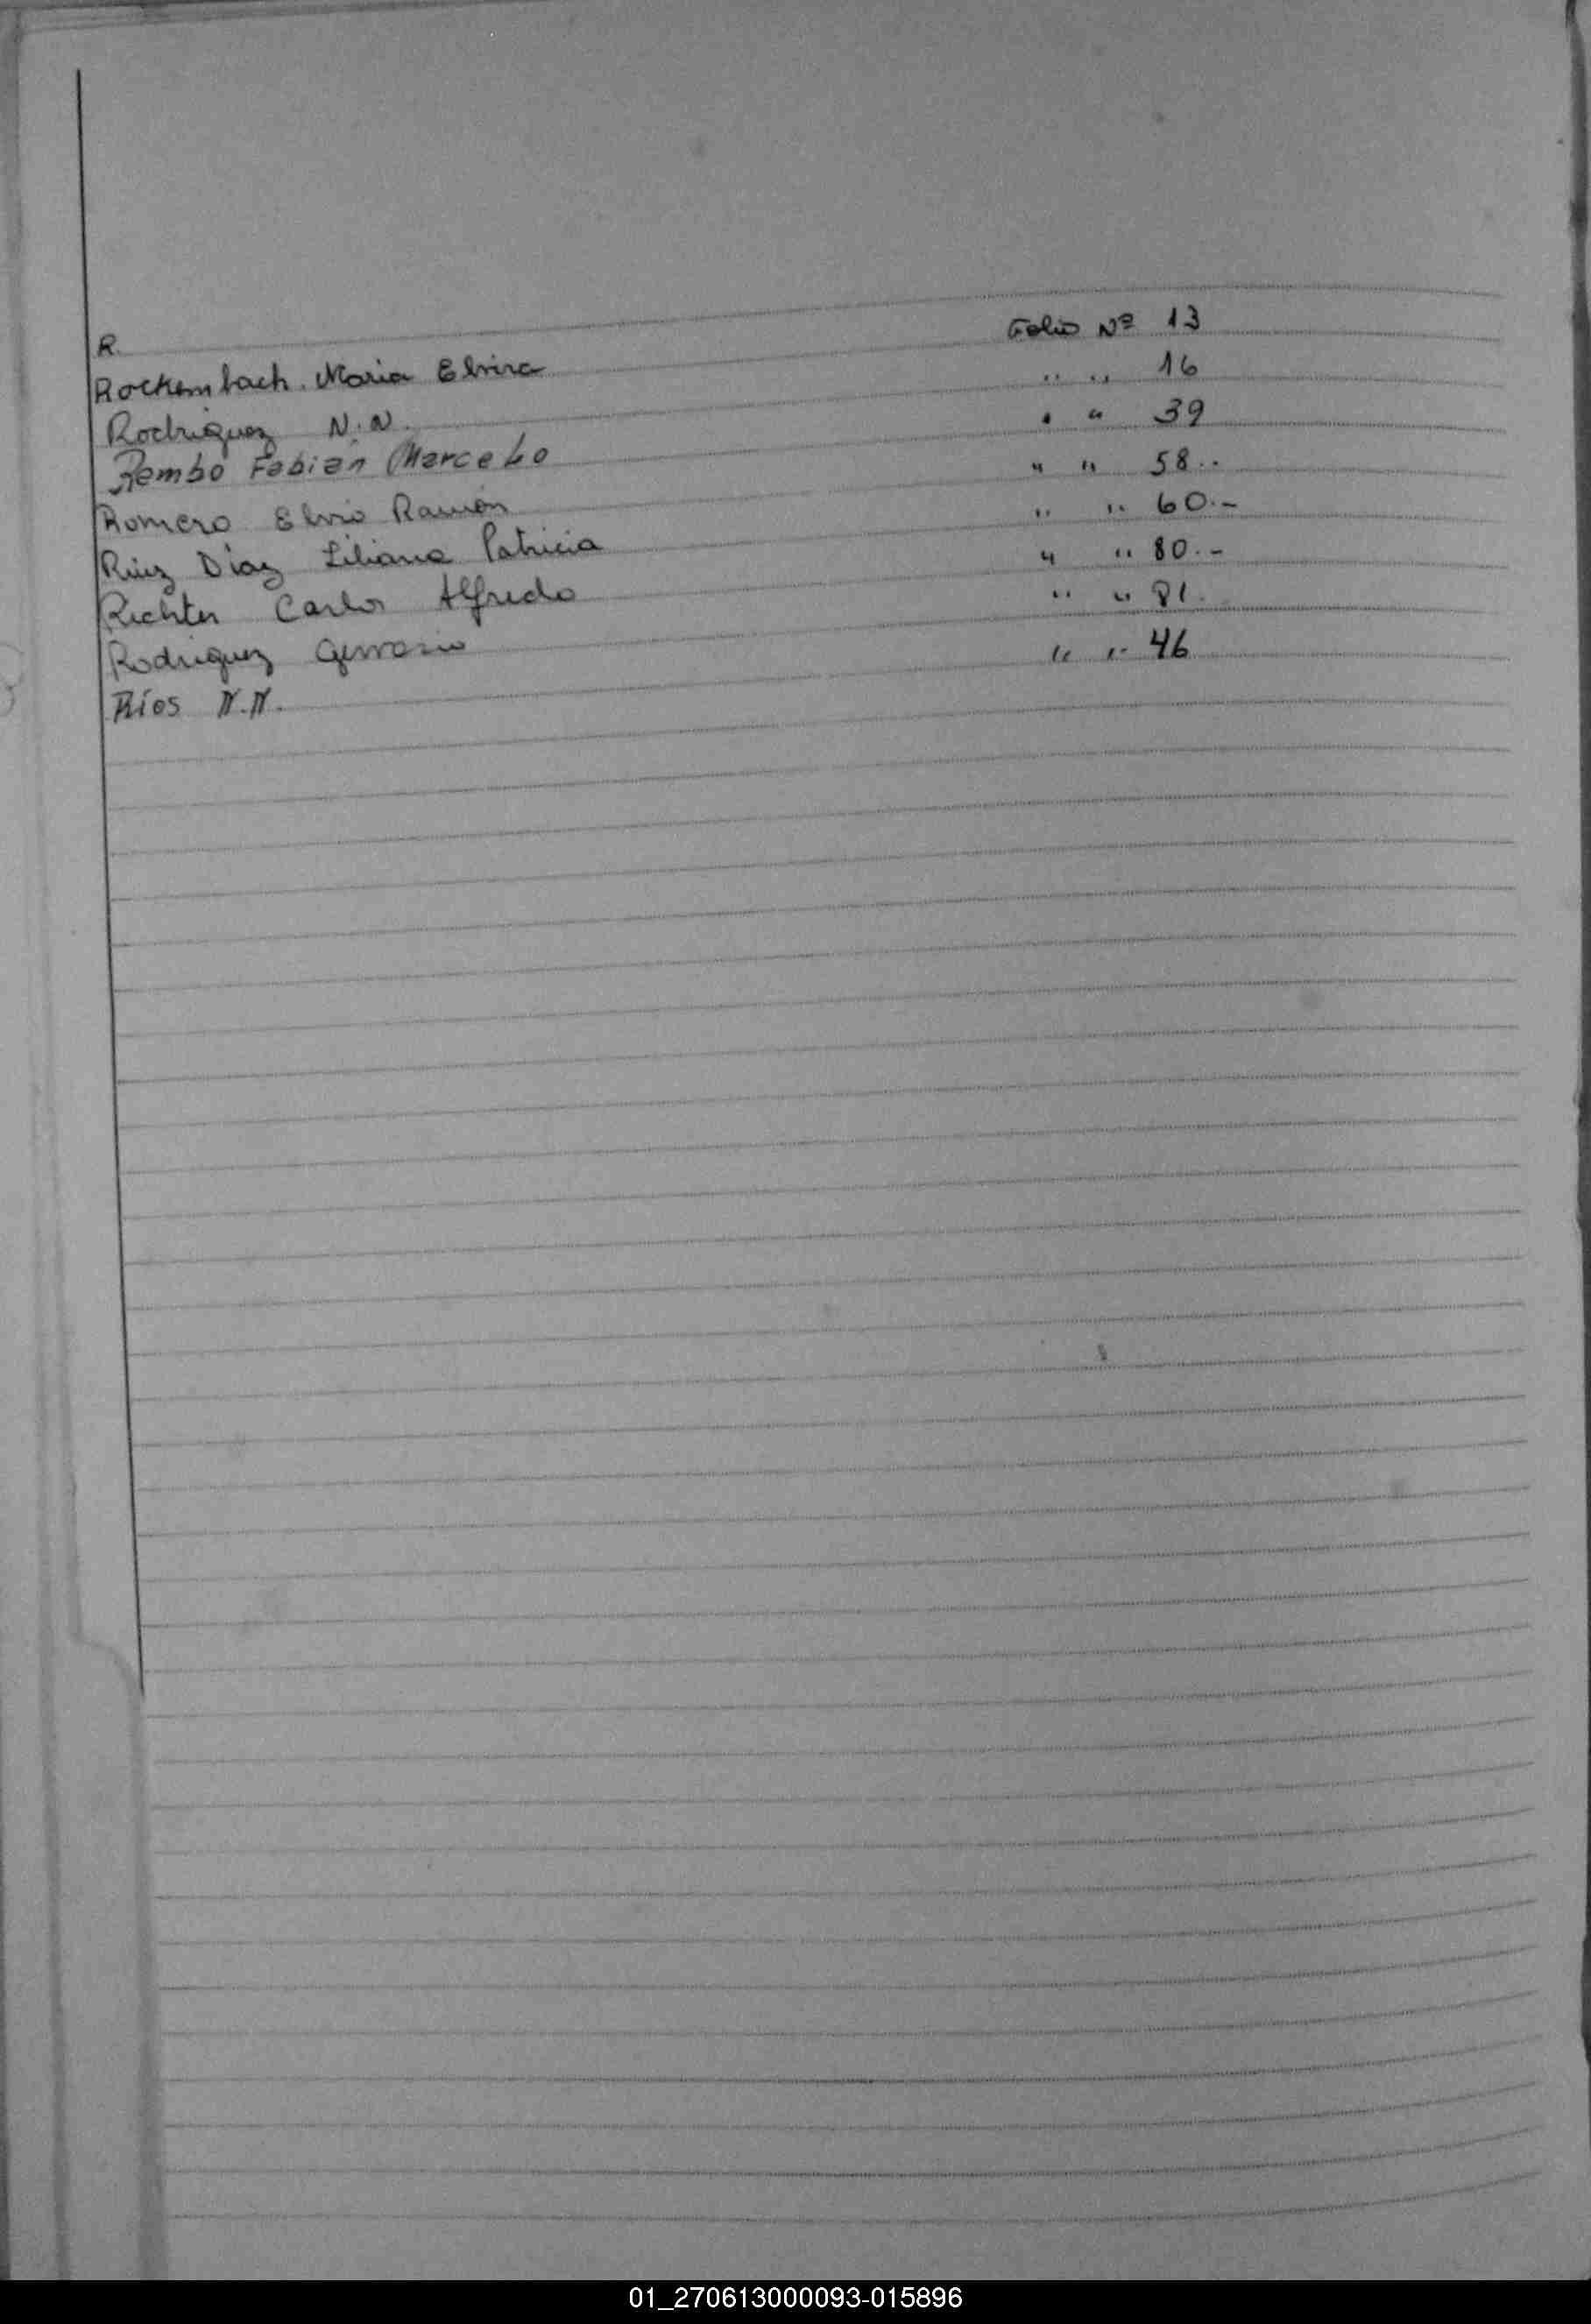 R.
Rockembach. Maria Elvira Folio Nº 13
Rodriguez N.N. " " 16
Rembo Fabián Marcelo " " 39
Romero Elvio Ramón " " 58..
Ruiz Diaz Liliana Patricia " " 60.-
Richter Carlos Alfredo " " 80.-
Rodriguez Gervasio " " 81.
Ríos N.N. " " 46
01_270613000093-015896